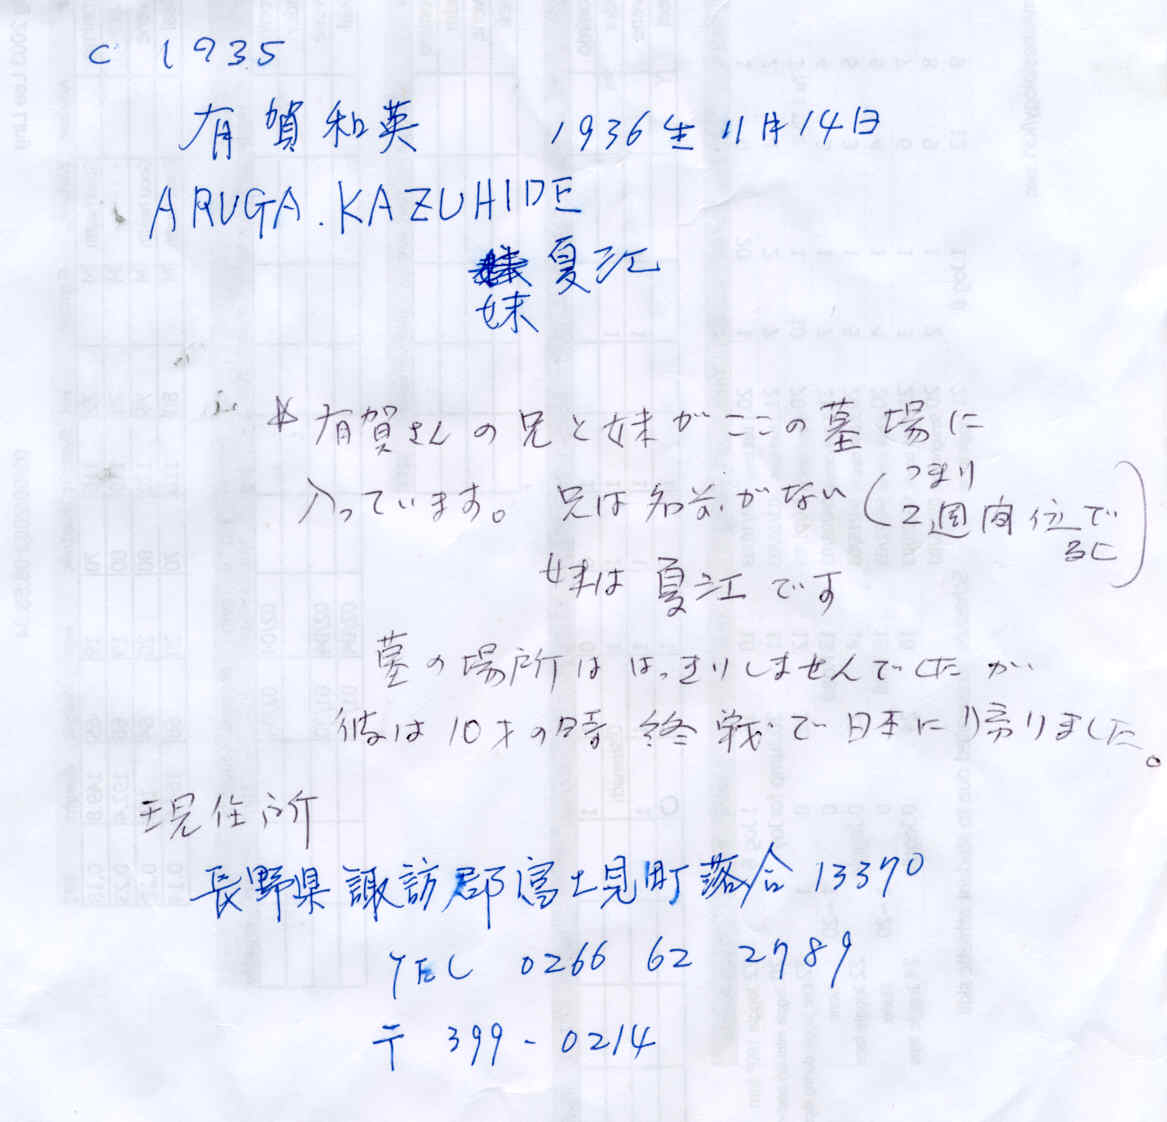 C 1935
有賀和英 1936年11月14日
ARUGA.KAZUHIDE
夏江
妹
* 有賀さんの兄と妹がここの墓場に
入っています。 兄は名前がない (つまり
2週間位で
死亡)
妹は夏江です
墓の場所ははっきりしませんでしたが
彼は10才の時終戦で日本に帰りました。
現住所
長野県諏訪郡富士見町落合13370
TEL 0266 62 2789
〒 399-0214